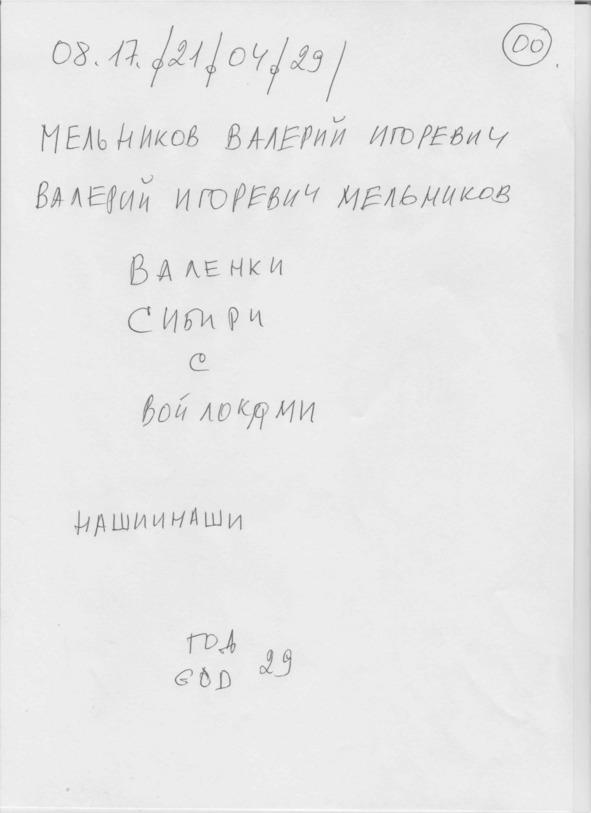 08.17./21/04/29/
00
МЕЛЬНИКОВ ВАЛЕРИЙ ИГОРЕВИЧ
ВАЛЕРИЙ ИГОРЕВИЧ МЕЛЬНИКОВ
ВАЛЕНКИ
СИБИРИ
С
ВОЙЛОКАМИ
НАШИИНАШИ
ГОД
GOD 29